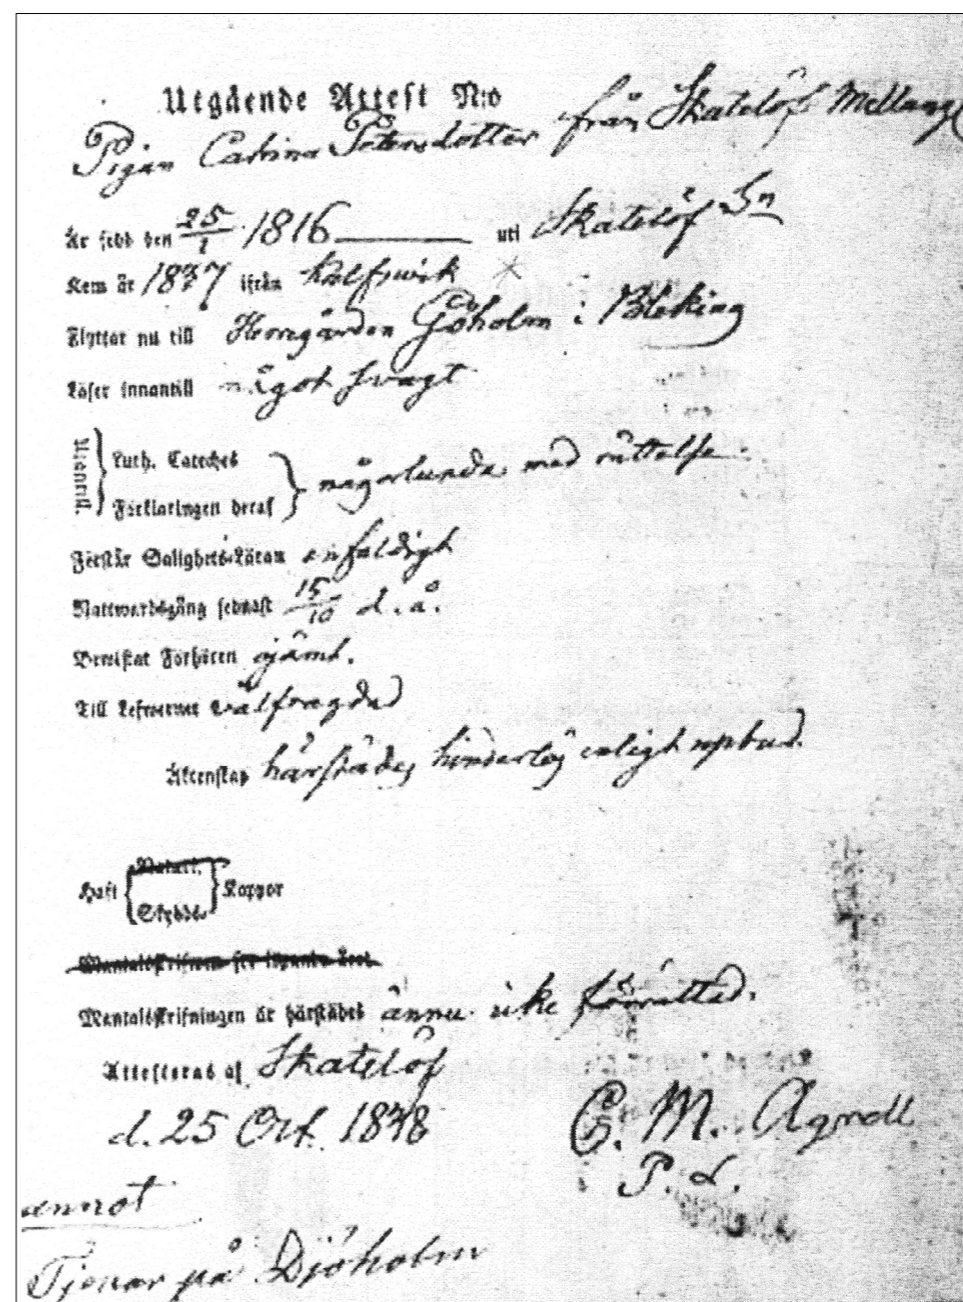 Utgående Attest N:o
Pigan Catrina Petersdotter från Skatelöf Mellang
Är född den 25/1 1816 uti Skatelöf Sn
Kom år 1837 ifrån Kalfswik
Flyttar nu till Herregården Göholm i Bleking
Läser innantill något swagt
Utantill. { Luth. Cateches
Förklaringen deraf } någorlunda med rättelse.
Förstår Salighets-Läran enfaldigt
Nattwardsgång sednast 15/10 d. å.
Bewistat Förhören ojämt.
Till Lefwernet wälfregdad
Äktenskap härstädes hinderlös enligt upbud.
Haft { Naturl.
Skydds- } Koppor
Mantalsskrifwen för löpande året
Mantalsskrifningen är härstädes ännu icke förrättad.
Attesteras af Skatelöf
d. 25 Oct. 1838 C. M. Agrell
P. L.
annot
Tjenar på Djöholm